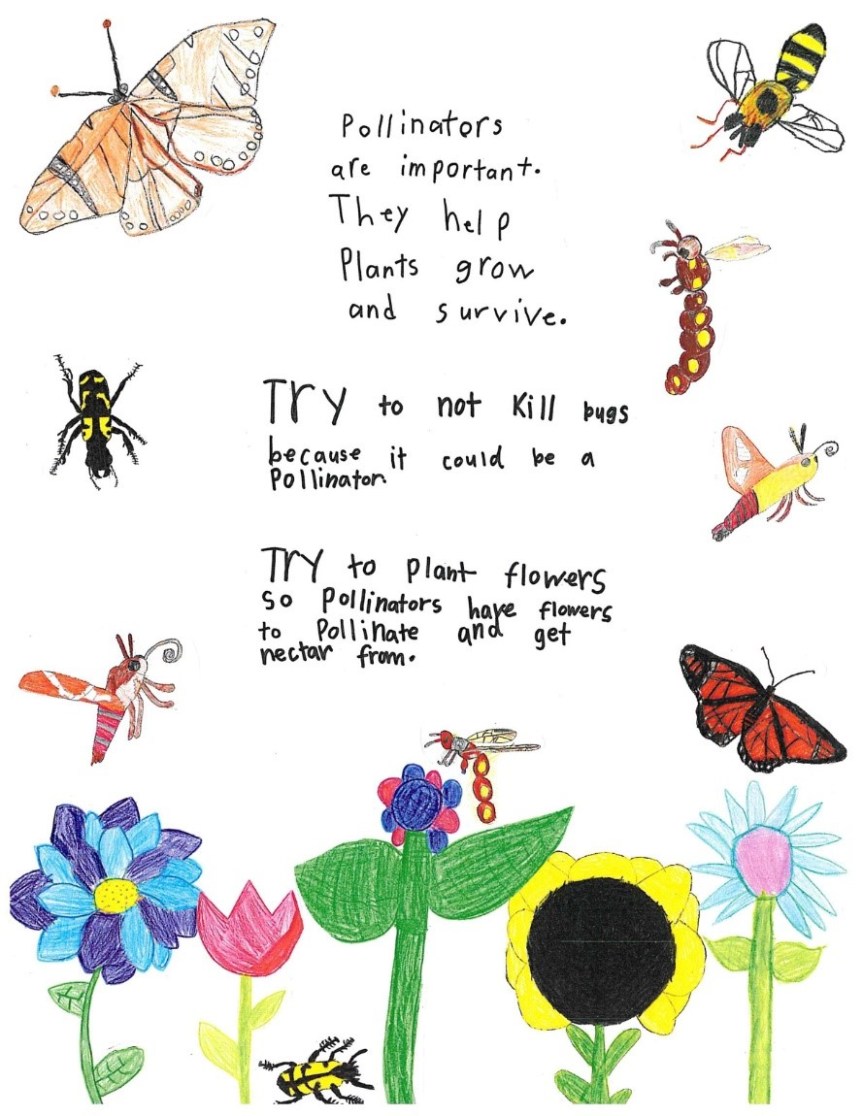 Pollinators
are important.
They help
Plants grow
and survive.
TRY to not Kill bugs
because it could be a
Pollinator
TRY to plant flowers
so Pollinators have flowers
to Pollinate and get
nectar from.